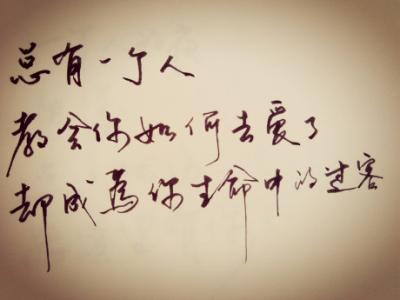 总有一个人
教会你如何去爱了
却成为你生命中的过客